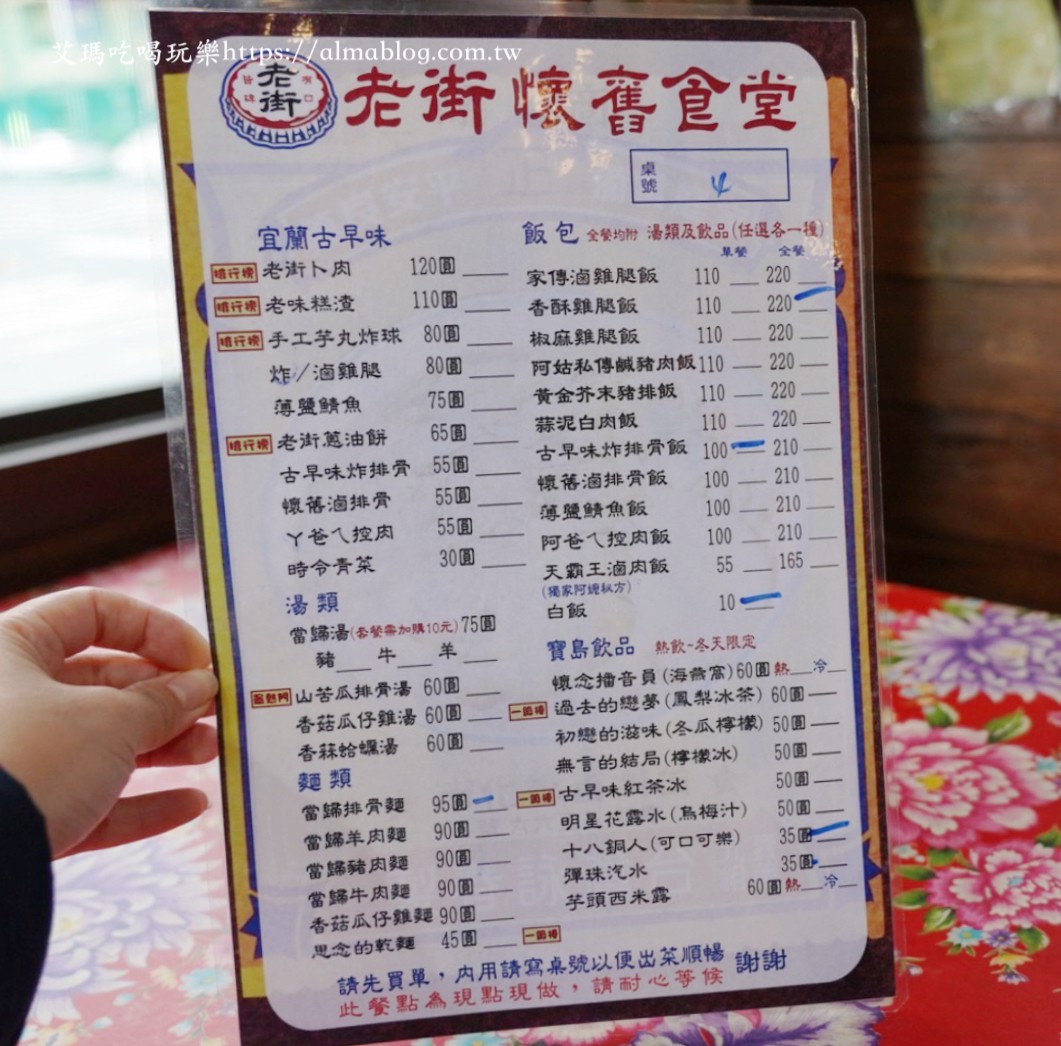 艾瑪吃喝玩樂https://almablog.com.tw
老街
有口皆碑
老街懷舊食堂
桌號 4
宜蘭古早味
排行榜 老街卜肉 120圓
排行榜 老味糕渣 110圓
排行榜 手工芋丸炸球 80圓
炸/滷雞腿 80圓
薄鹽鯖魚 75圓
排行榜 老街蔥油餅 65圓
古早味炸排骨 55圓
懷舊滷排骨 55圓
ㄚ爸ㄟ控肉 55圓
時令青菜 30圓
湯類
當歸湯(套餐需加購10元) 75圓
豬 牛 羊
超熱門 山苦瓜排骨湯 60圓
香菇瓜仔雞湯 60圓
香蒜蛤蠣湯 60圓
麵類
當歸排骨麵 95圓
當歸羊肉麵 90圓
當歸豬肉麵 90圓
當歸牛肉麵 90圓
香菇瓜仔雞麵 90圓
思念的乾麵 45圓 一級棒
飯包 全餐均附 湯類及飲品(任選各一種)
單餐 全餐
家傳滷雞腿飯 110 220
香酥雞腿飯 110 220
椒麻雞腿飯 110 220
阿姑私傳鹹豬肉飯 110 220
黃金芥末豬排飯 110 220
蒜泥白肉飯 110 220
古早味炸排骨飯 100 210
懷舊滷排骨飯 100 210
薄鹽鯖魚飯 100 210
阿爸ㄟ控肉飯 100 210
天霸王滷肉飯 55 165
(獨家阿嬤秘方)
白飯 10
寶島飲品 熱飲-冬天限定
懷念播音員(海燕窩) 60圓 熱 冷
一級棒 過去的戀夢(鳳梨冰茶) 60圓
初戀的滋味(冬瓜檸檬) 50圓
無言的結局(檸檬冰) 50圓
一級棒 古早味紅茶冰 50圓
明星花露水(烏梅汁) 50圓
十八銅人(可口可樂) 35圓
彈珠汽水 35圓
芋頭西米露 60圓 熱 冷
請先買單，內用請寫桌號以便出菜順暢 謝謝
此餐點為現點現做，請耐心等候